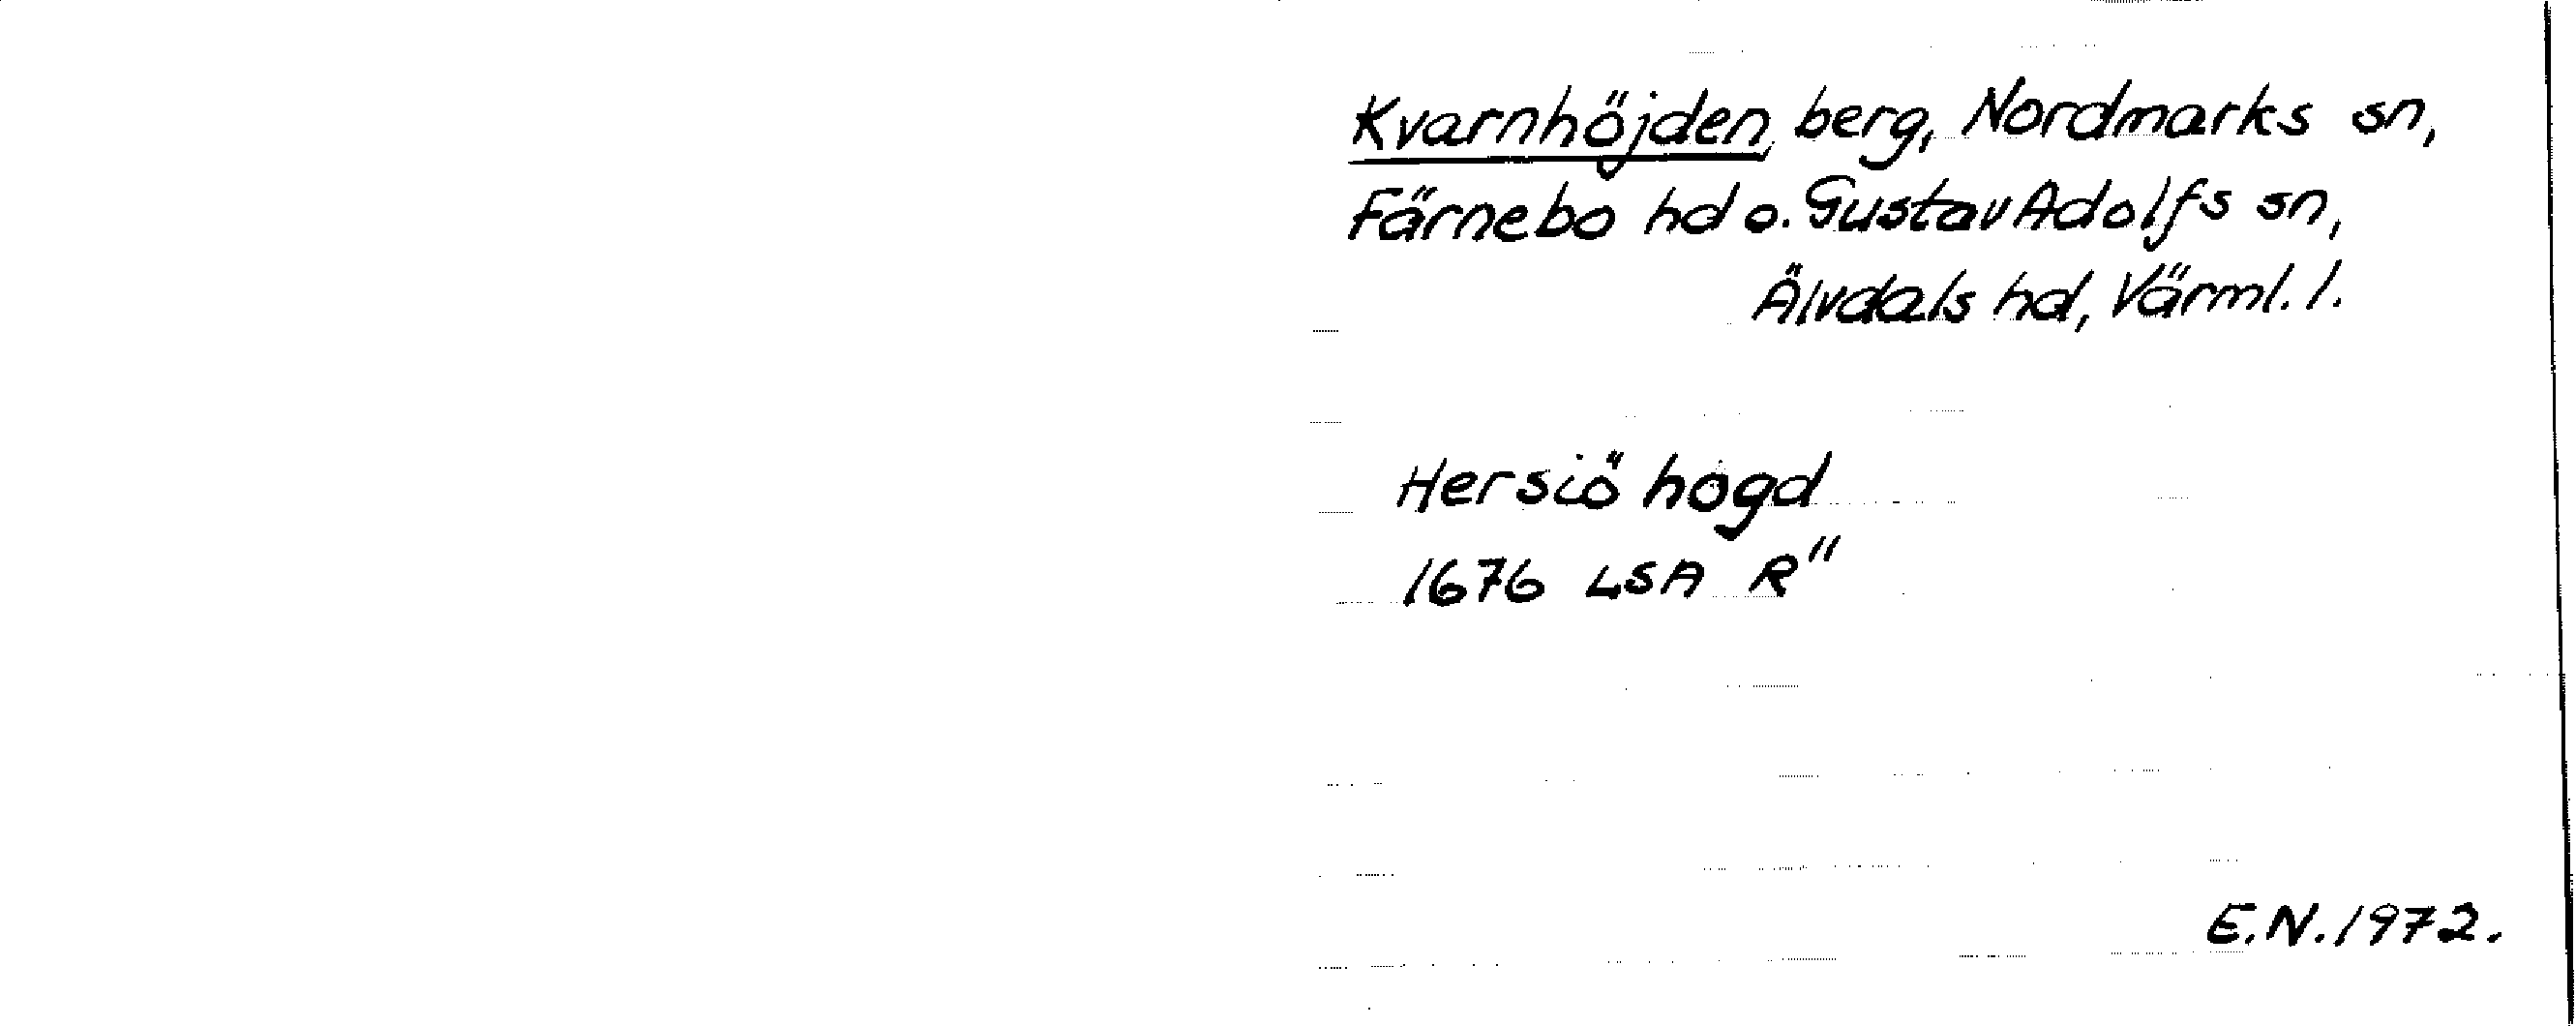 Kvarnhöjden, berg, Nordmarks sn,
Färnebo hd o. Gustav Adolfs sn,
Älvdals hd, Värml. l.
Hersiö högd
1676 LSA R"
E.N. 1972.